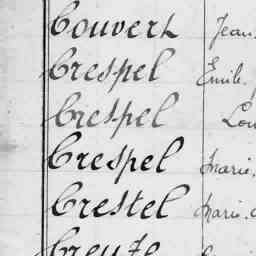 Couvert Jean
Crespel Emile
Crespel Lou
Crespel Marie
Crestel Marie
Creuze